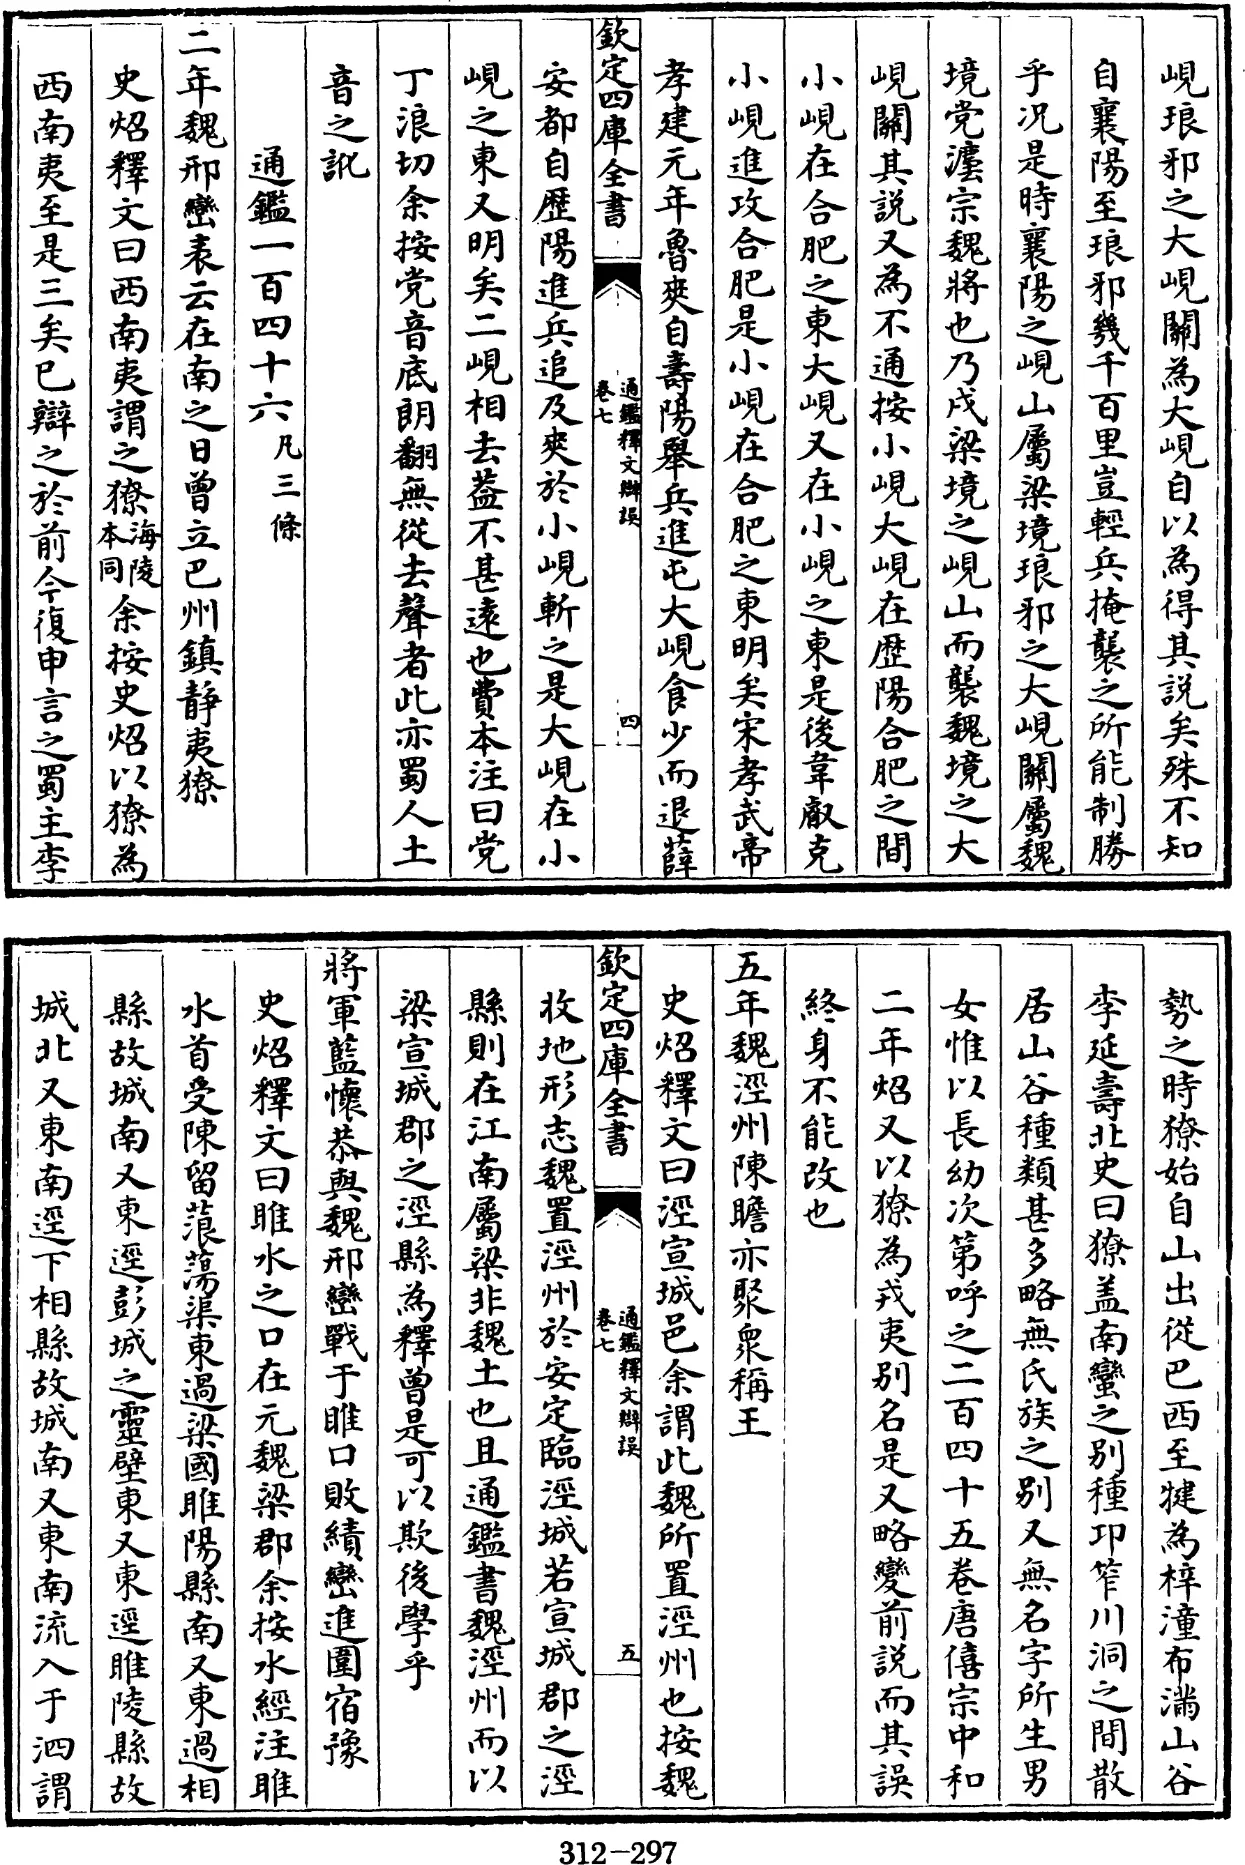 峴琅邪之大峴關為大峴自以為得其説矣殊不知
自襄陽至琅邪幾千百里豈輕兵掩襲之所能制勝
乎況是時襄陽之峴山屬梁境琅邪之大峴關屬魏
境党灋宗魏將也乃戍梁境之峴山而襲魏境之大
峴關其説又為不通按小峴大峴在歴陽合肥之間
小峴在合肥之東大峴又在小峴之東是後韋叡克
小峴進攻合肥是小峴在合肥之東明矣宋孝武帝
孝建元年魯爽自壽陽舉兵進屯大峴食少而退薛
欽定四庫全書
通鑑釋文辯誤
卷七
四
安都自歴陽進兵追及爽於小峴斬之是大峴在小
峴之東又明矣二峴相去葢不甚遠也費本注曰党
丁浪切余按党音底朗翻無從去聲者此亦蜀人土
音之訛
通鑑一百四十六凡三條
二年魏邢巒表云在南之日曾立巴州鎮靜夷獠
史炤釋文曰西南夷謂之獠海陵本同余按史炤以獠為
西南夷至是三矣已辯之於前今復申言之蜀主李
勢之時獠始自山出從巴西至犍為梓潼布滿山谷
李延壽北史曰獠盖南蠻之别種卭笮川洞之間散
居山谷種類甚多略無氏族之别又無名字所生男
女惟以長幼次第呼之二百四十五卷唐僖宗中和
二年炤又以獠為戎夷别名是又略變前説而其誤
終身不能改也
五年魏涇州陳瞻亦聚衆稱王
史炤釋文曰涇宣城邑余謂此魏所置涇州也按魏
欽定四庫全書
通鑑釋文辯誤
卷七
五
收地形志魏置涇州於安定臨涇城若宣城郡之涇
縣則在江南屬梁非魏土也且通鑑書魏涇州而以
梁宣城郡之涇縣為釋曾是可以欺後學乎
將軍藍懷恭與魏邢巒戰于睢口敗績巒進圍宿豫
史炤釋文曰睢水之口在元魏梁郡余按水經注睢
水首受陳留蒗蕩渠東過梁國睢陽縣南又東過相
縣故城南又東逕彭城之靈壁東又東逕睢陵縣故
城北又東南逕下相縣故城南又東南流入于泗謂
312-297